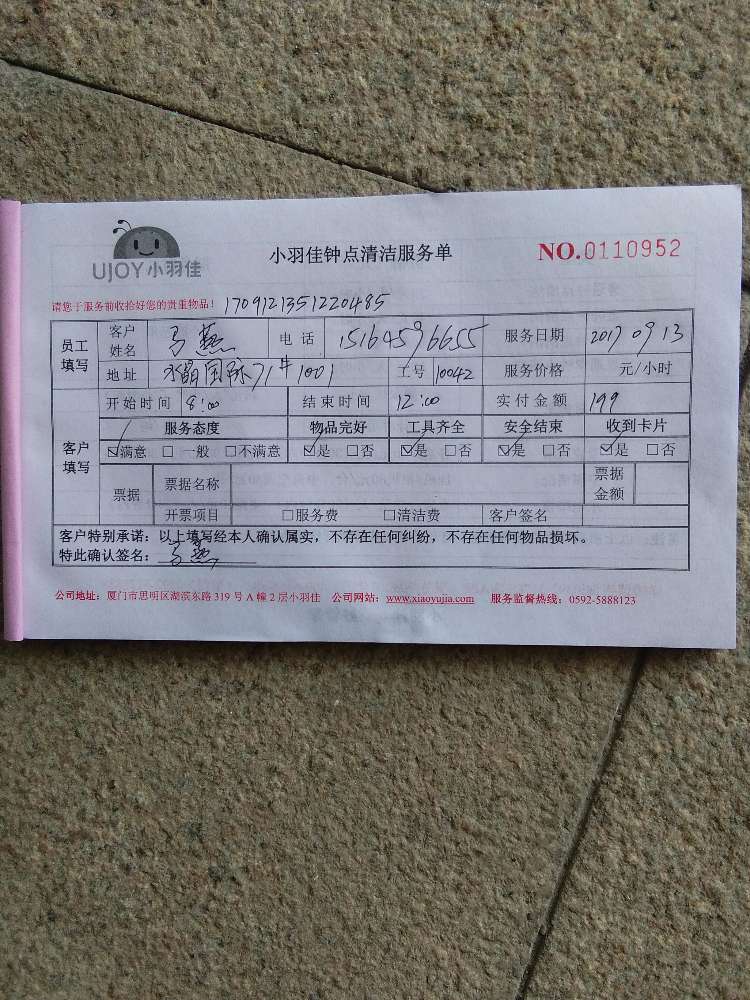 UJOY小羽佳
小羽佳钟点清洁服务单
NO.0110952
请您于服务前收拾好您的贵重物品! 1709121351220485
员工填写 客户姓名 马燕 电话 15164596655 服务日期 2017 09 13
地址 水晶国际71# 1001 工号 10042 服务价格 元/小时
客户填写 开始时间 8:00 结束时间 12:00 实付金额 199
服务态度 物品完好 工具齐全 安全结束 收到卡片
☑满意 □一般 □不满意 ☑是 □否 ☑是 □否 ☑是 □否 ☑是 □否
票据 票据名称 票据金额
开票项目 □服务费 □清洁费 客户签名
客户特别承诺：以上填写经本人确认属实，不存在任何纠纷，不存在任何物品损坏。
特此确认签名：马燕
公司地址：厦门市思明区湖滨东路 319 号 A 幢 2 层小羽佳 公司网站：www.xiaoyujia.com 服务监督热线：0592-5888123